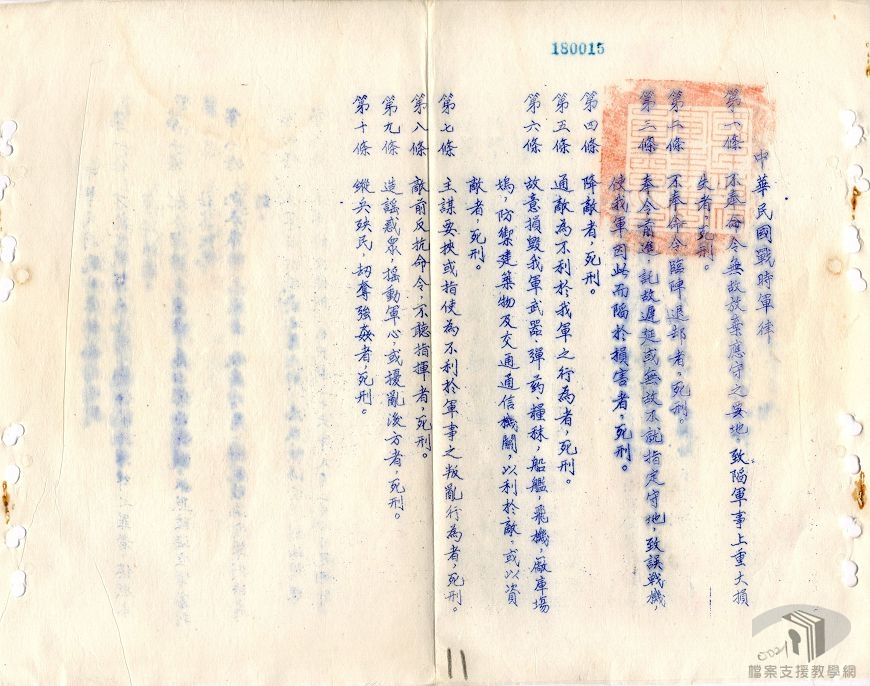 180015
中華民國戰時軍律
第一條 不奉命令無故放棄應守之要地，致陷軍事上重大損
失者，死刑。
第二條 不奉命令臨陣退卻者，死刑。
第三條 奉令前進，託故遲延或無故不就指定守地，致誤戰機，
使我軍因此而陷於損害者，死刑。
第四條 降敵者，死刑。
第五條 通敵為不利於我軍之行為者，死刑。
第六條 故意損毀我軍武器、彈药、糧秣，船艦，飛機，廠庫場
塢，防禦建築物及交通通信機關，以利於敵，或以資
敵者，死刑。
第七條 主謀要挾或指使為不利於軍事之叛亂行為者，死刑。
第八條 敵前反抗命令，不聽指揮者，死刑。
第九條 造謠惑眾，搖動軍心，或擾亂後方者，死刑。
第十條 縱兵殃民，刼奪強姦者，死刑。
11
0021
檔案支援教學網